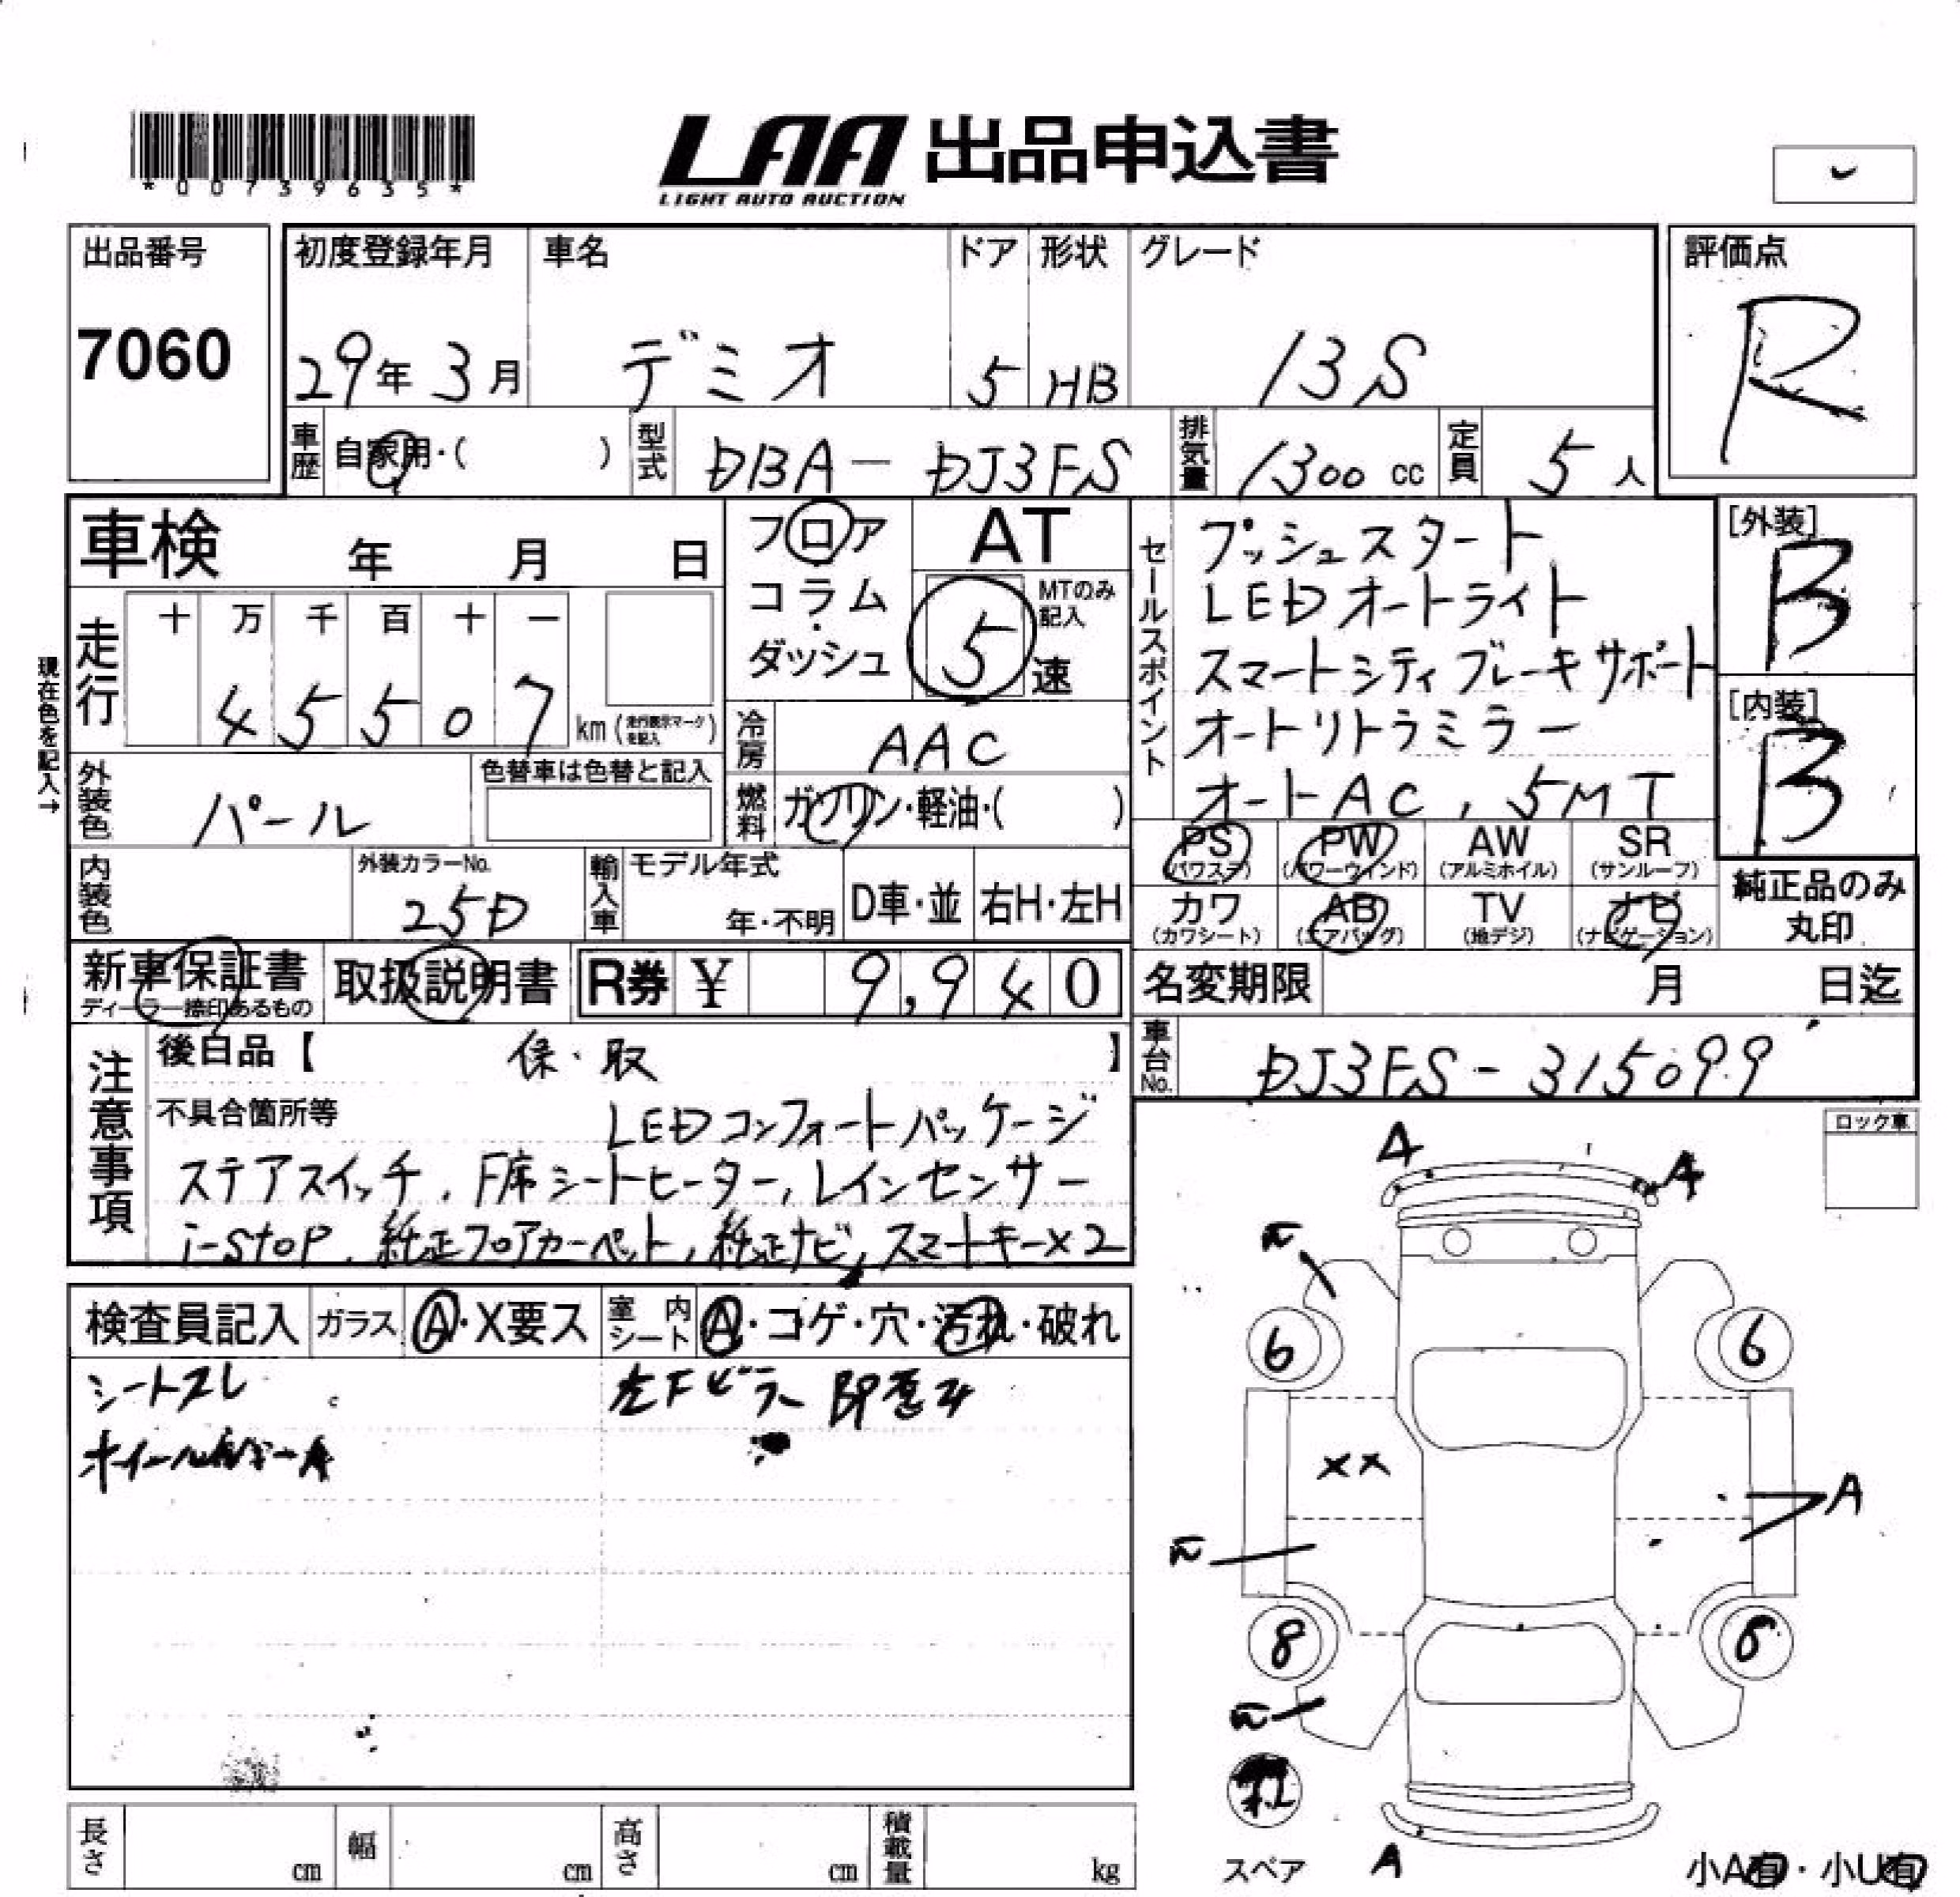 *00739635*
LAA 出品申込書
LIGHT AUTO AUCTION
出品番号
7060
初度登録年月
29年 3月
車名
デミオ
ドア
5
形状
HB
グレード
13S
評価点
R
車歴 自家用・( )
型式 DBA-DJ3FS
排気量 1300 cc
定員 5人
車検 年 月 日
フロア
コラム・
ダッシュ
AT
5速
MTのみ
記入
セールスポイント
プッシュスタート
LEDオートライト
スマートシティブレーキサポート
オートリトラミラー
オートAC, 5MT
[外装]
B
[内装]
B
現在色を記入→
走行
十 万 千 百 十 一
4 5 5 0 7 km(走行表示マークを記入)
冷房 AAC
燃料 ガソリン・軽油・( )
外装色 パール
色替車は色替と記入
内装色
外装カラーNo.
25D
輸入車
モデル年式
年・不明
D車・並
右H・左H
PS
(パワステ)
PW
(パワーウインド)
AW
(アルミホイル)
SR
(サンルーフ)
カワ
(カワシート)
AB
(エアバッグ)
TV
(地デジ)
ナビ
(ナビゲーション)
純正品のみ
丸印
新車保証書
ディーラー捺印あるもの
取扱説明書
R券 ¥ 9,940
名変期限 月 日迄
車台No. DJ3FS-315099
注意事項
後日品【 保・取 】
不具合箇所等 LEDコンフォートパッケージ
ステアスイッチ, F席シートヒーター, レインセンサー
i-stop, 純正フロアカーペット, 純正ナビ, スマートキー×2
ロック車
検査員記入
ガラス
A・X要ス
室内シート
A・コゲ・穴・汚れ・破れ
シートスレ
左Fピラー 即歪み
A A
6 6
XX
A
8
スペア
A
小A有・小U有
長さ cm
幅 cm
高さ cm
積載量 kg